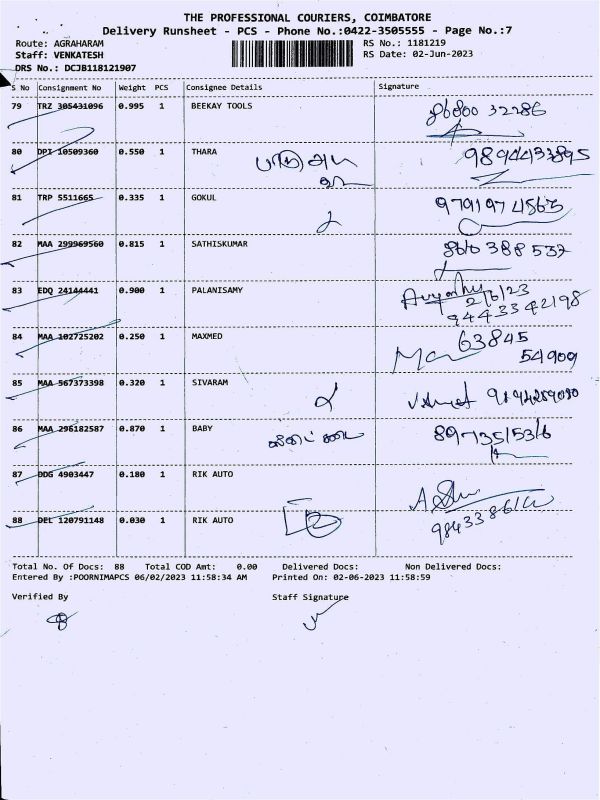 THE PROFESSIONAL COURIERS, COIMBATORE
Delivery Runsheet - PCS - Phone No.:0422-3505555 - Page No.:7
Route: AGRAHARAM RS No.: 1181219
Staff: VENKATESH RS Date: 02-Jun-2023
DRS No.: DCJB118121907
S No Consignment No Weight PCS Consignee Details Signature
79 TRZ 305431096 0.995 1 BEEKAY TOOLS 86800 32286
80 DPI 10509360 0.550 1 THARA 9894433895
81 TRP 5511665 0.335 1 GOKUL 9791974563
82 MAA 299969560 0.815 1 SATHISKUMAR
83 EDQ 24144441 0.900 1 PALANISAMY
2/6/23
9443342198
84 MAA 102725202 0.250 1 MAXMED 63845
54909
85 MAA 567373398 0.320 1 SIVARAM
86 MAA 296182587 0.870 1 BABY
87 DDG 4903447 0.180 1 RIK AUTO
88 DEL 120791148 0.030 1 RIK AUTO
Total No. Of Docs: 88 Total COD Amt: 0.00 Delivered Docs: Non Delivered Docs:
Entered By :POORNIMAPCS 06/02/2023 11:58:34 AM Printed On: 02-06-2023 11:58:59
Verified By Staff Signature